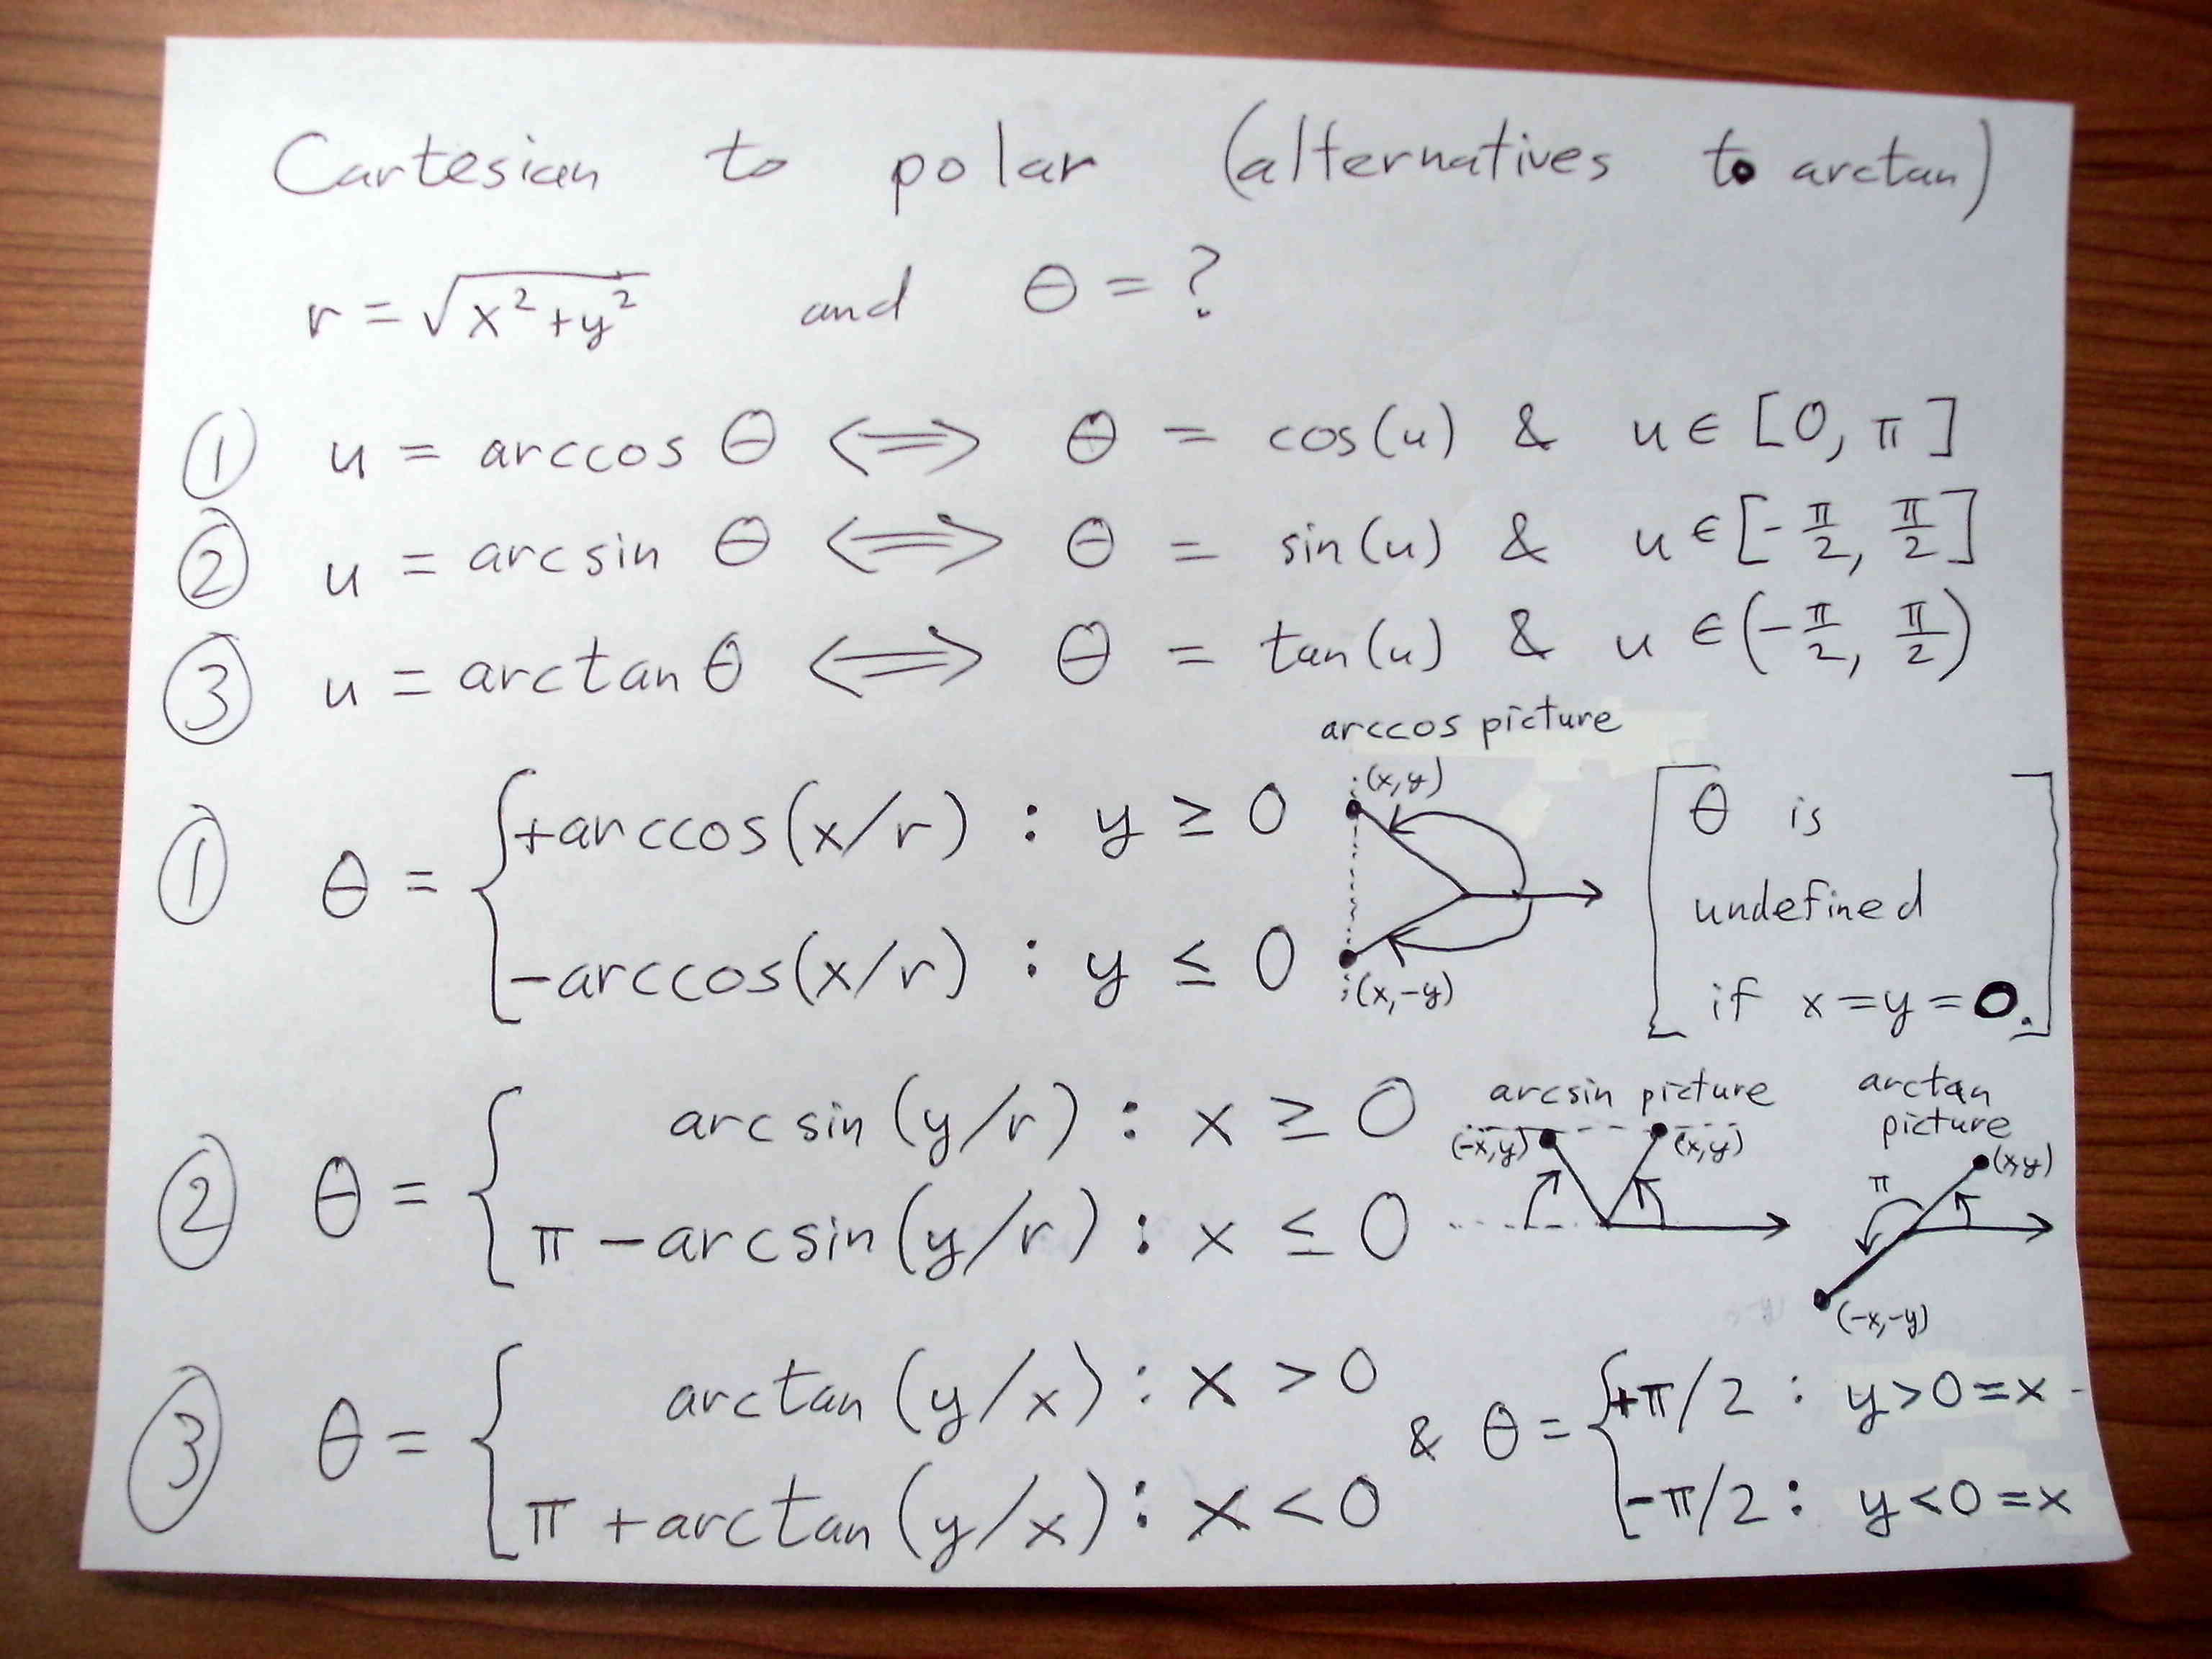 Cartesian to polar (alternatives to arctan)
r = √x²+y² and θ = ?
① u = arccos θ ⟺ θ = cos(u) & u ∈ [0, π]
② u = arcsin θ ⟺ θ = sin(u) & u ∈ [-π/2, π/2]
③ u = arctan θ ⟺ θ = tan(u) & u ∈ (-π/2, π/2)
arccos picture
(x,y)
① θ = { +arccos(x/r) : y ≥ 0
-arccos(x/r) : y ≤ 0
(x,-y)
[θ is
undefined
if x=y=0.]
② θ = { arcsin(y/r) : x ≥ 0
π -arcsin(y/r) : x ≤ 0
arcsin picture
(-x,y) (x,y)
arctan
picture
(x,y)
π
(-x,-y)
③ θ = { arctan(y/x) : x > 0
π +arctan(y/x) : x < 0
& θ = { +π/2 : y>0=x
-π/2 : y<0=x